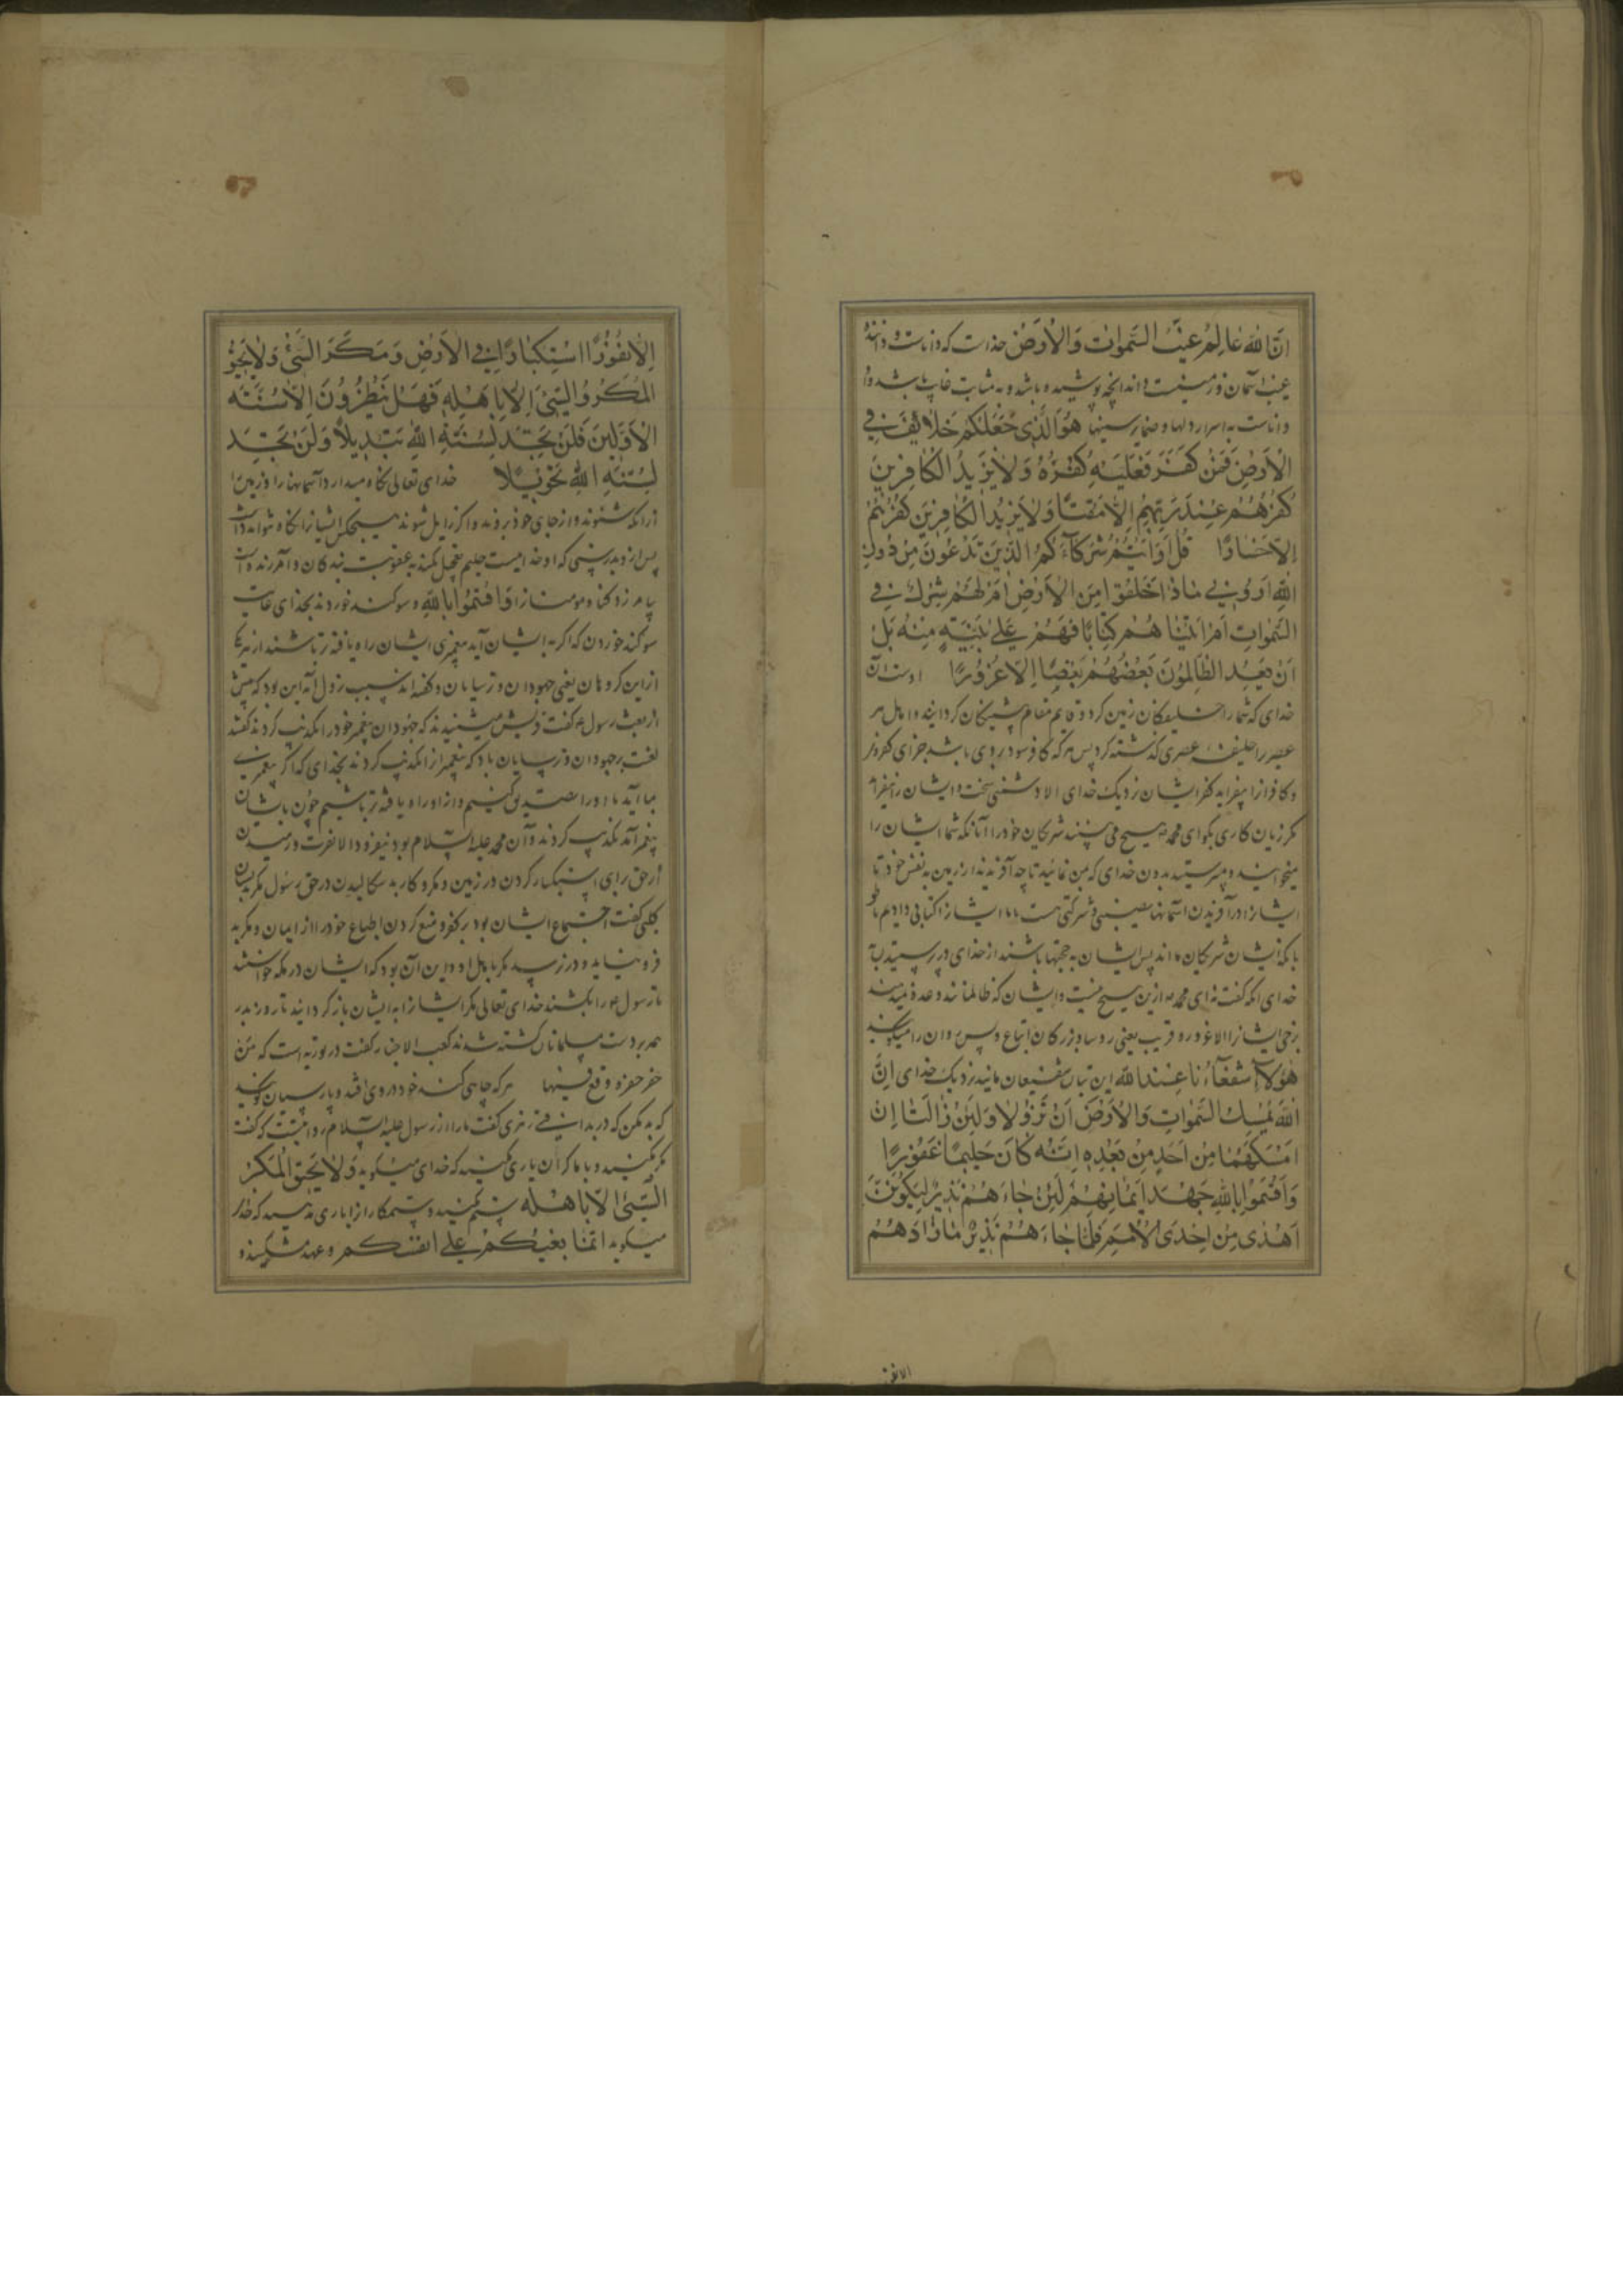 ان الله عالم غیب السموات والارض خداست که داناست و داننده
غیب آسمان و زمینست و اند انچه پوشیده باشد و به مثابت غایب باشد و او
داناست به اسرار دلها و ضمایر سینها هو الذی جعلکم خلائف فی
الارض فمن کفر فعلیه کفره ولا یزید الکافرین
کفرهم عند ربهم الا مقتا ولا یزید الکافرین کفرهم
الا خسارا قل ارایتم شرکاءکم الذین تدعون من دون
الله ارونی ماذا خلقوا من الارض ام لهم شرک فی
السموات ام اتینا هم کتابا فهم علی بینة منه بل
ان یعد الظالمون بعضهم بعضا الا غرورا اوست آن
خدای که شما را خلیفکان زمین کرد و قایم مقام پیشینکان کردانید و اهل هر
عصر را خلیفه عصری کذشته کرد پس هر که کافر شود بر وی باشد جزای کفر او
و کافرانرا نیفزاید کفر ایشان نزدیک خدای الا دشمنی سخت و ایشان را نیفزاید
مکر زیان کاری بکوای محمد هیچ می بینند شریکان خود را آنانکه شما ایشان را
میخوانید و میپرستید بدون خدای که من نمائید تا چه آفریدند از زمین به نفس خود تا
ایشانرا در آفریدن اسمانها نصیبی و شرکتی هست یا ما ایشانرا کتابی دادیم
باکه ایشان شریکان ما اند پس ایشان به حجتها باشند از خدای در پرستیدن
خدای انکه کفت نه ای محمد ازین هیچ نیست و ایشان که ظالمانند وعده ندهند
برخی ایشانرا الا غرور و فریب یعنی رؤسا و بزرکان اتباع و پس روان را میکویند
هؤلاء شفعاؤنا عند الله این بتان شفیعان مانید نزدیک خدای ان
الله یمسک السموات والارض ان تزولا ولئن زالتا ان
امسکهما من احد من بعده انه کان حلیما غفورا
واقسموا بالله جهد ایمانهم لئن جاءهم نذیر لیکونن
اهدی من احدی الامم فلما جاءهم نذیر ما زادهم
الا نفورا
الا نفورا استکبارا فی الارض ومکر السیئ ولا یحیق
المکر السیئ الا باهله فهل ینظرون الا سنة
الاولین فلن تجد لسنة الله تبدیلا ولن تجد
لسنة الله تحویلا خدای تعالی نکاه میدارد آسمانها را و زمین را
از انکه بشنوند و از جای خود بروند و اکر زایل شوند هیچکس ایشانرا نکاه نتواند داشت
پس از وی بدرستی که او خداییست حلیم تعجیل نکند به عقوبت بندکان و آمرزنده است
بیامرزد کناه مومنانرا واقسموا بالله و سوکند خوردند بخدای غایت
سوکند خوردن که اکر به ایشان آید پیغمبری ایشان راه یافته تر باشند از هر یک
از این کروهان یعنی جهودان و ترسایان و کفته اند سبب نزول آیه این بود که پیش
از بعثت رسول ع کفت قریش میشنیدند که جهودان پیغمبر خود را تکذیب کردند کفتند
لعنت بر جهودان و ترسایان باد که پیغمبرانرا تکذیب کردند بخدای که اکر پیغمبری
بما آید ما او را تصدیق کنیم و از او راه یافته تر باشیم چون بایشان
پیغمبر آمد تکذیب کردند و آن محمد علیه السلام بود نیفزود الا نفرت و رمیدن
از حق برای استکبار کردن در زمین و مکر و کار بد سکالیدن در حق رسول مکر بدیشان
کلبی کفت اجتماع ایشان بود بر کفر و منع کردن اطباع خود را از ایمان و مکر بد
فرو نیاید و در نرسد مکر باهل او و این آن بود که ایشان در مکه خواستند
تا رسول ع را بکشند خدای تعالی مکر ایشانرا به ایشان باز کردانید تا روز بدر
همه بر دست مسلمانان کشته شدند کعب الاحبار کفت در توریة است که من
حفر حفرة وقع فیها هر که چاهی کند خود در وی افتد و پارسیان کویند
که بد مکن که در بد افتی زهری کفت ما را از رسول علیه السلام روایتست که کفت
مکر مکنید و با ماکران یاری مکنید که خدای میکوید ولا یحیق المکر
السیئ الا باهله ستم مکنید و ستمکارانرا یاری مدهید که خدای
میکوید انما بغیکم علی انفسکم و عهد مشکنید و